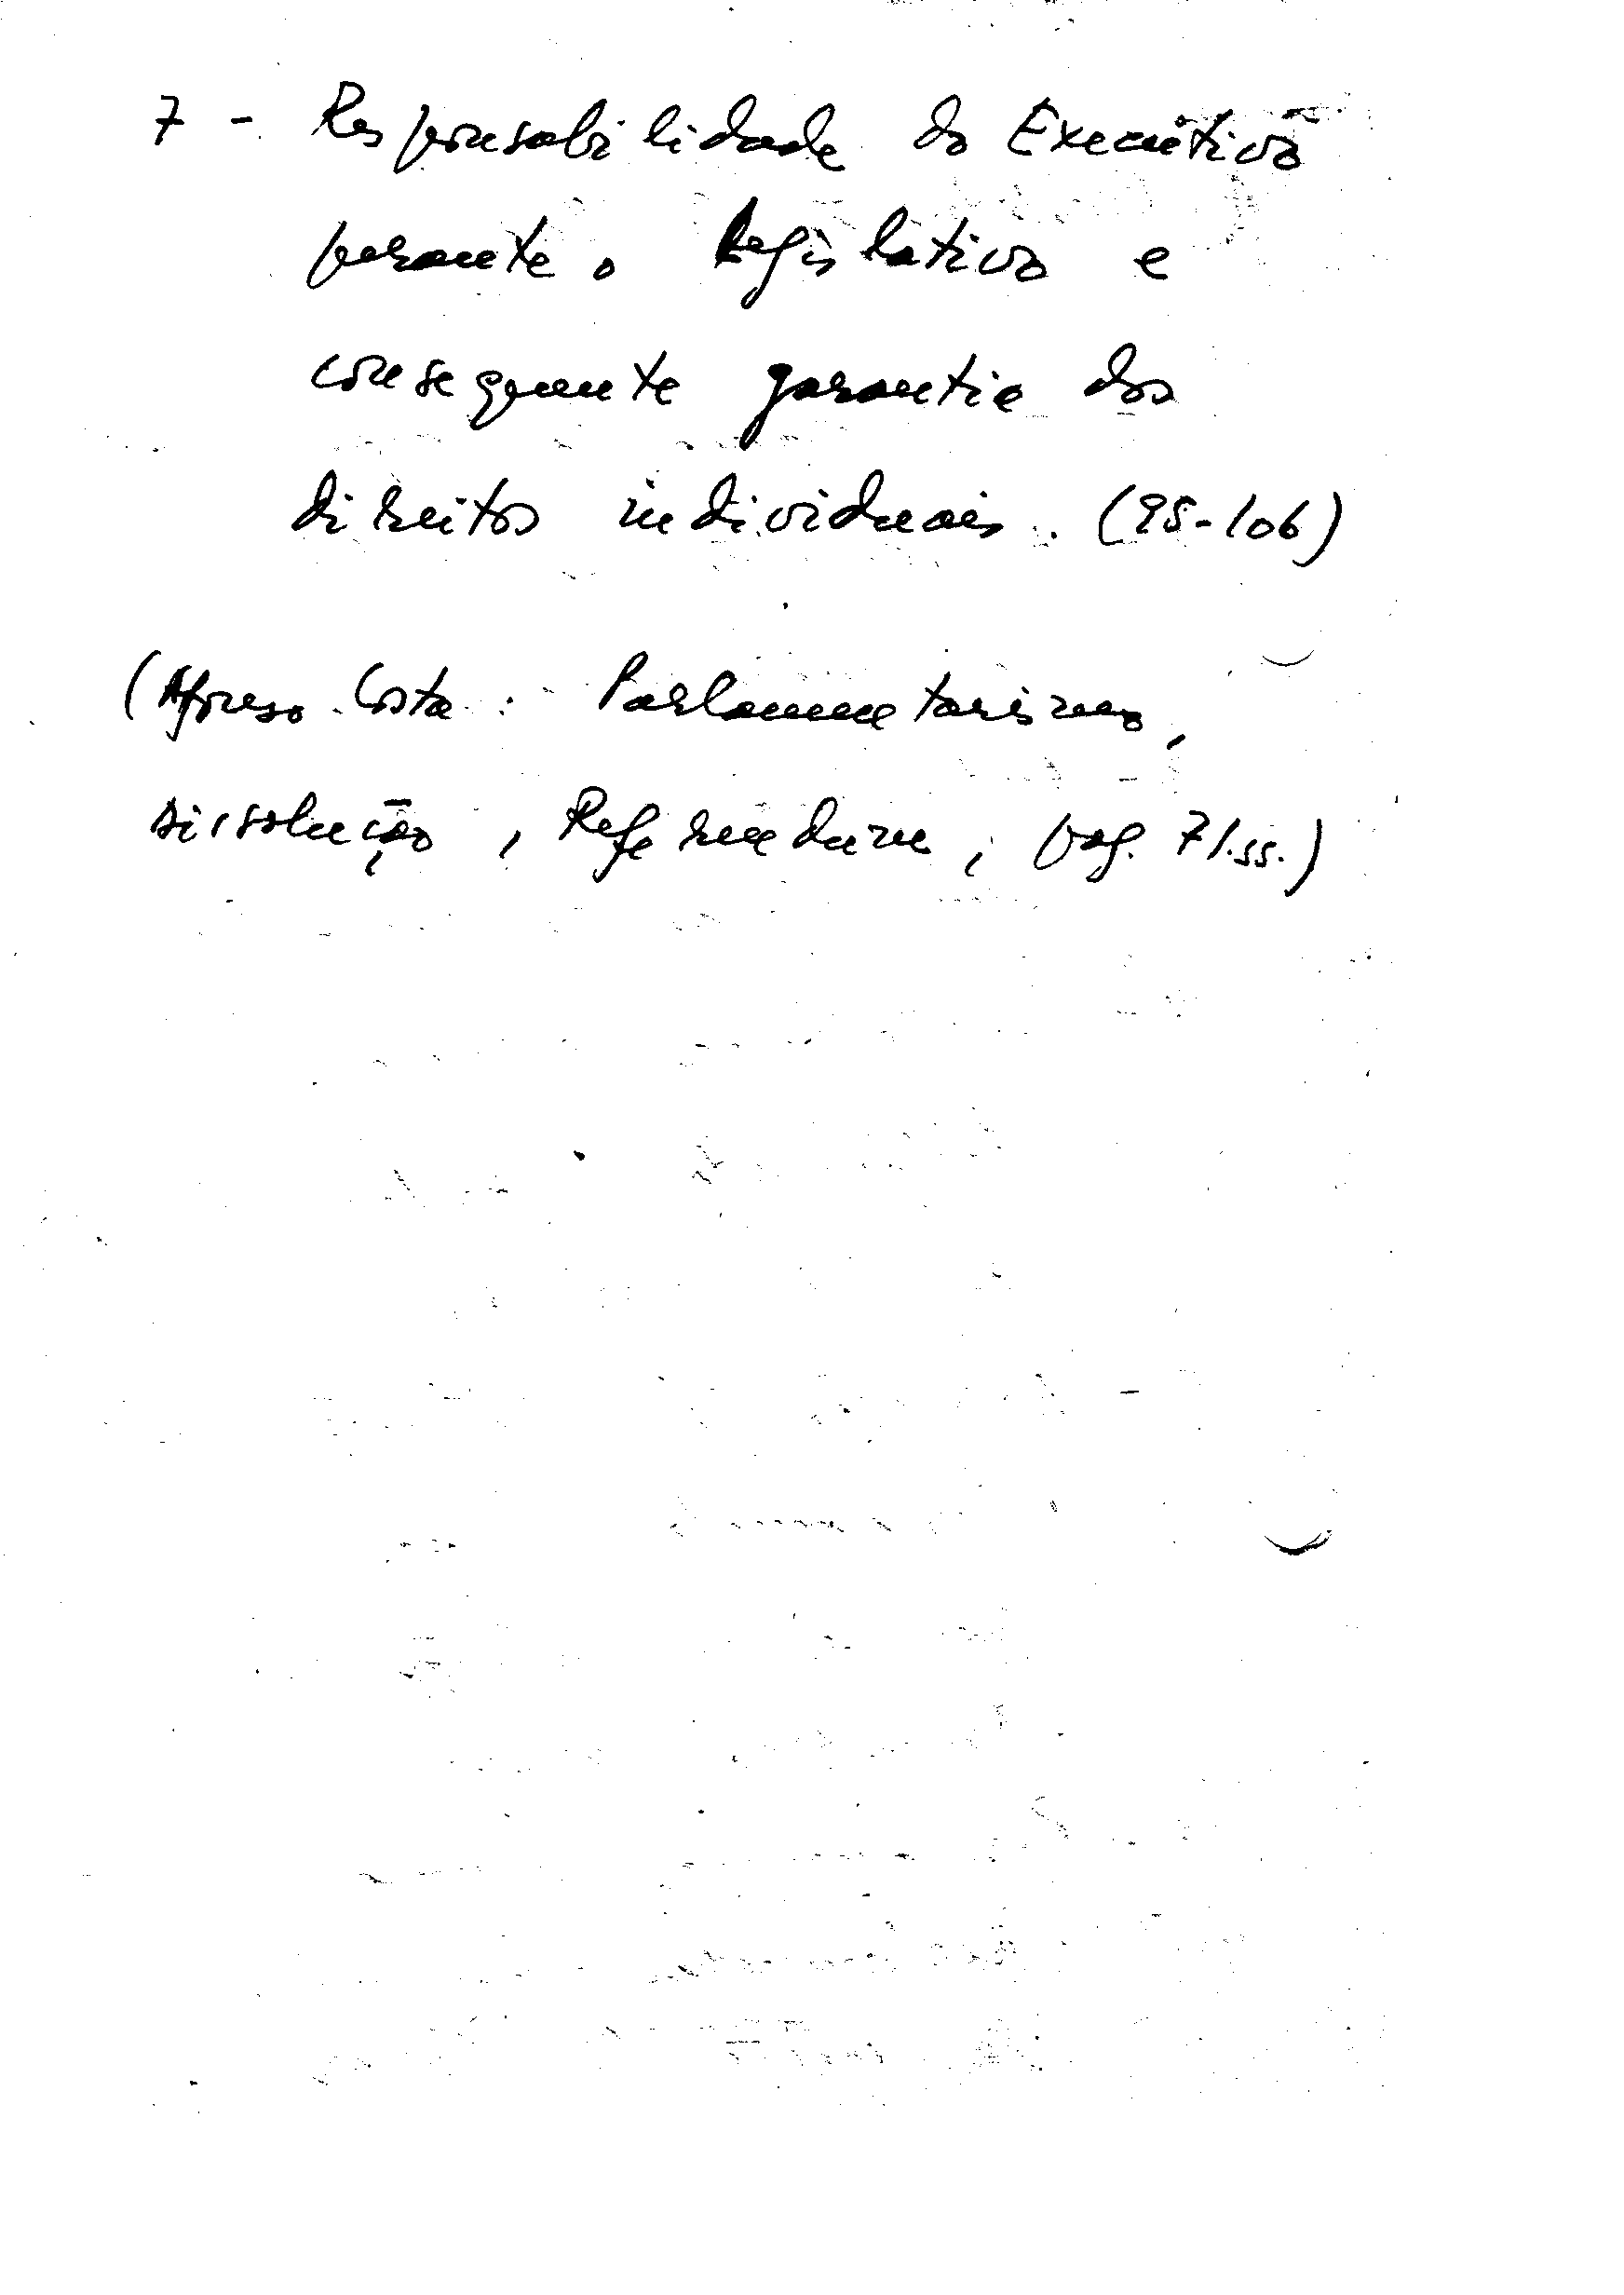 7 - Responsabilidade do Executivo
perante o Legislativo e
consequente garantia dos
direitos individuais. (95-106)
(Afonso Costa: Parlamentarismo,
Dissolução, Referendum, pag. 71.ss.)